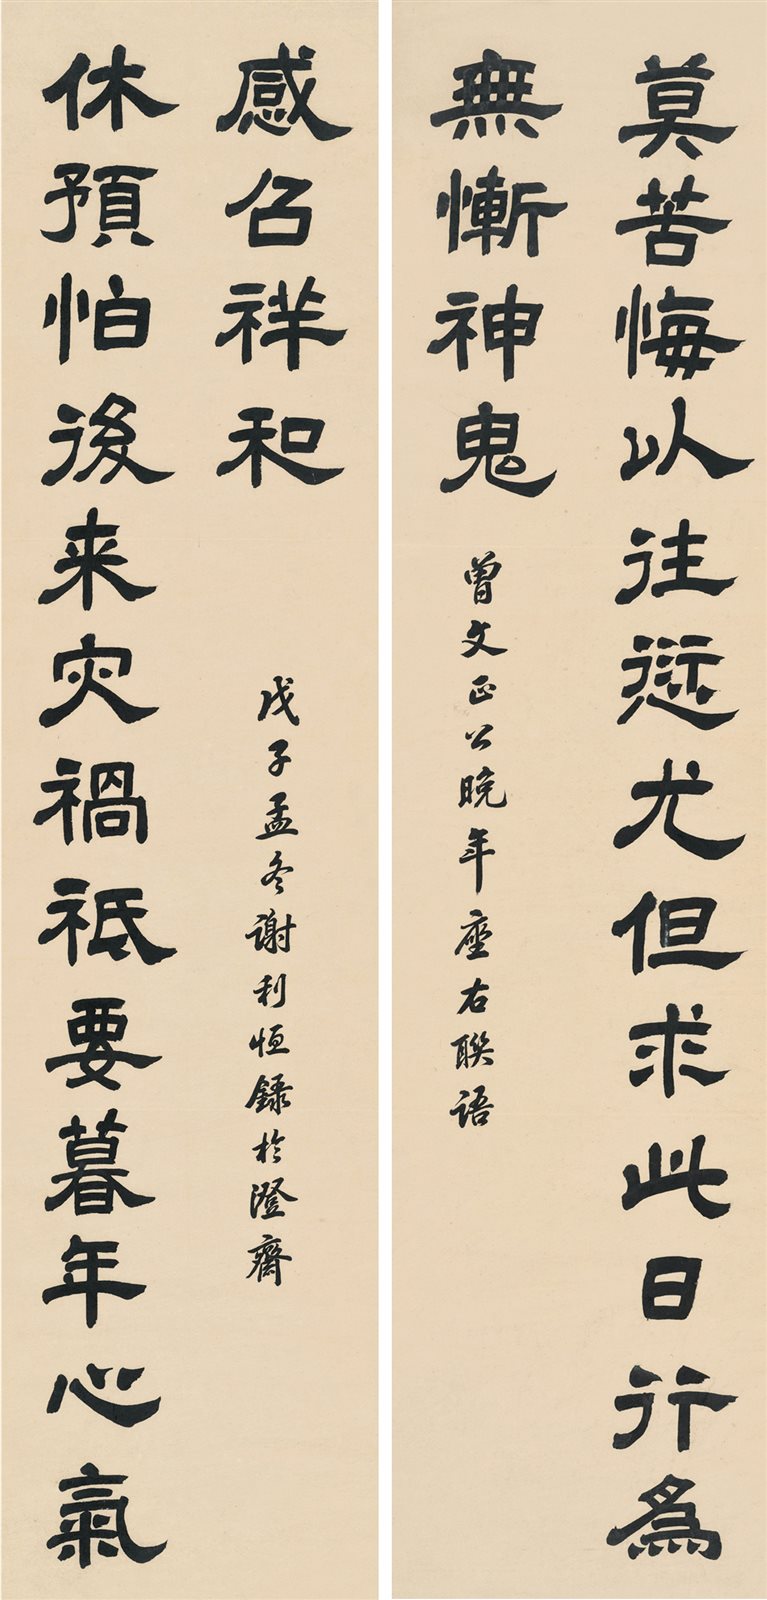 莫苦悔以往愆尤但求此日行為
無慚神鬼
曾文正公晚年座右聯語
休預怕後来灾禍祗要暮年心氣
感召祥和
戊子孟冬謝利恒錄於澄齋